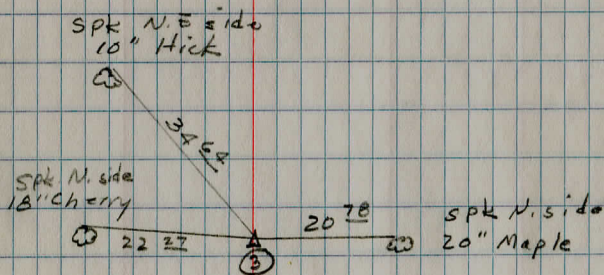 Spk N.E side
10" Hick
34 64
Spk. N. side
18" Cherry
22 27
20 78
Spk N. side
20" Maple
3